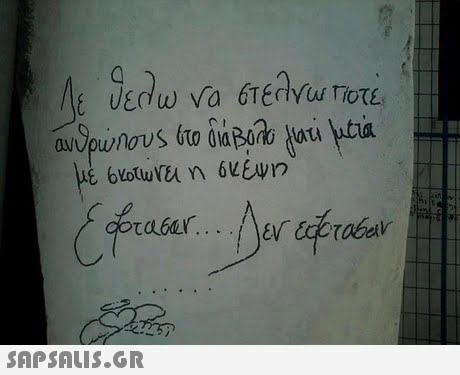 Δε θελω να στελνω ποτέ
ανθρώπους στο διάβολο γιατί μετά
με σκοτώνει η σκέψη
Εφτασαν.... Δεν εφτασαν
......
SAPSALIS.GR